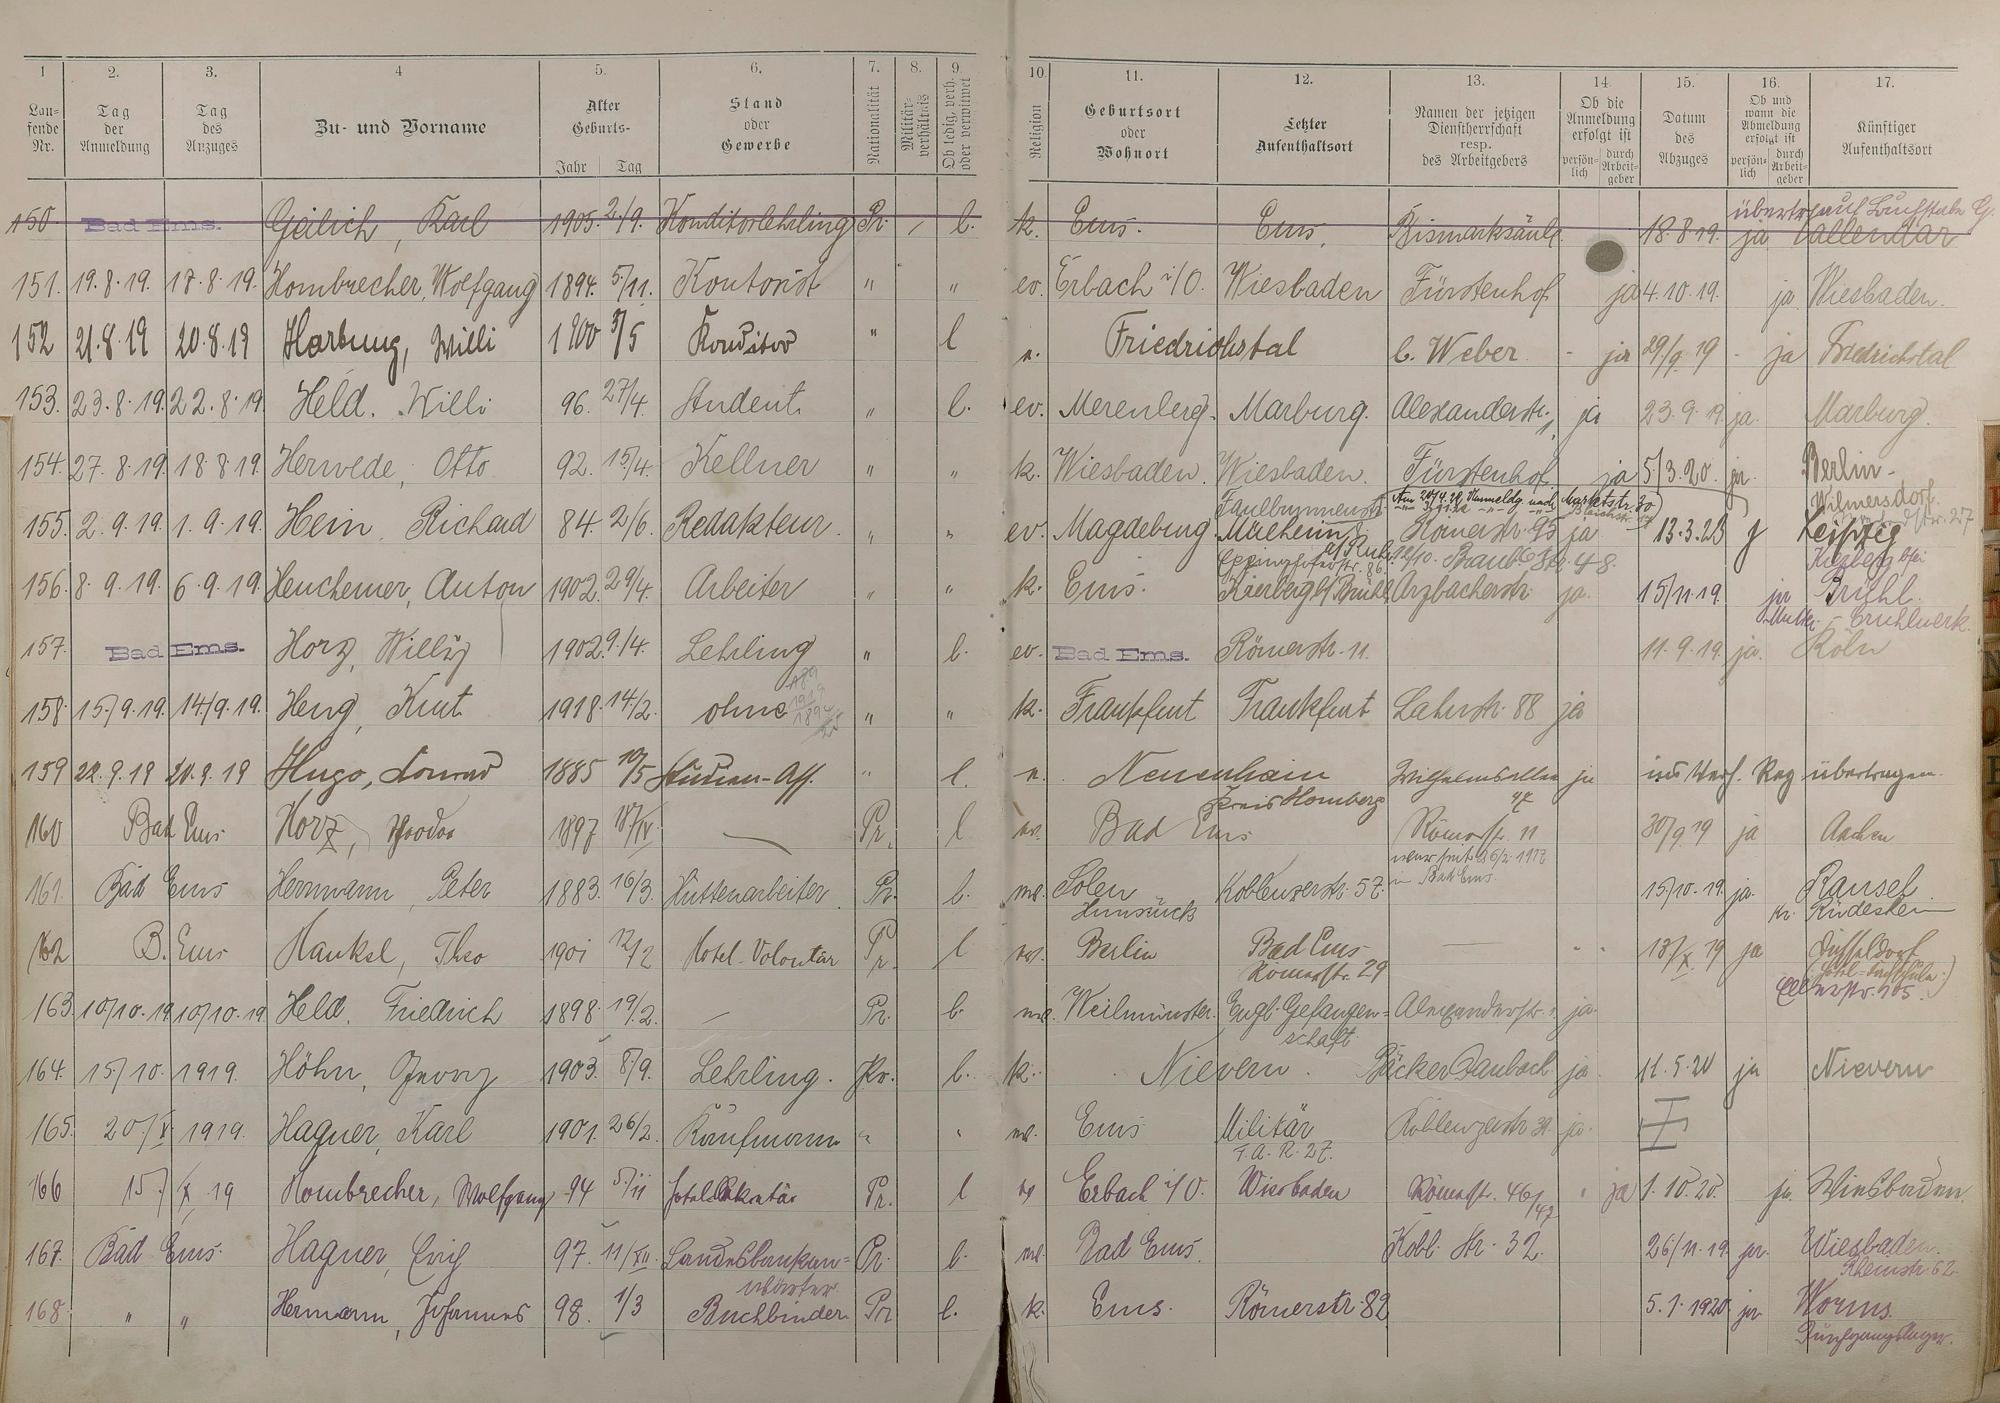 1 2. 3. 4 5. 6. 7. 8. 9. 10. 11. 12. 13. 14. 15. 16. 17.
Laufende Nr. Tag der Anmeldung Tag des Anzuges Zu- und Vorname Alter Geburts- Jahr Tag Stand oder Gewerbe Nationalität Militärverhältnis Ob ledig, verh. oder verwitwet Religion Geburtsort oder Wohnort Letzter Aufenthaltsort Namen der jetzigen Dienstherrschaft resp. des Arbeitgebers Ob die Anmeldung erfolgt ist persönlich durch Arbeitgeber Datum des Abzuges Ob und wann die Abmeldung erfolgt ist persönlich durch Arbeitgeber Künftiger Aufenthaltsort
150 Bad Ems. Geilich, Karl 1905. 2/9. Konditorlehrling Pr. / l. k. Ems. Ems, Bismarksäule 18.8.19. ja Vallendar
151. 19.8.19. 17.8.19. Hombrecher, Wolfgang 1894. 5/11. Kontorist " " ev. Erbach i/O. Wiesbaden Fürstenhof ja 4.10.19. ja Wiesbaden.
152 21.8.19 20.8.19 Harbung, Willi 1900 5/5 Konditor " l Friedrichstal C. Weber - ja 29/9.19 - ja Friedrichstal
153. 23.8.19. 22.8.19. Held. Willi 96. 27/4. Student. " l. ev. Merenberg. Marburg. Alexanderstr. 1 ja 23.9.19. ja. Marburg.
154. 27.8.19. 18.8.19. Herwede, Otto 92. 15/4. Kellner " " k. Wiesbaden. Wiesbaden. Fürstenhof ja 5/3.20. ja. Berlin-
Wilmersdorf.
Faulbrunnenstr.
155. 2.9.19. 1.9.19. Hein, Richard 84. 2/6. Redakteur. " " ev. Magdeburg. Mülheim Römerstr. 95 ja 13.3.23 j Leipzig
a/Ruhr 48.
156. 8.9.19. 6.9.19. Heuchemer, Anton 1902. 29/4. Arbeiter " " k. Ems. Kierberg b/Brühl Arzbacherstr. ja. 15/11.19. ja Brühl.
157. Bad Ems. Horz, Willy 1902. 9/4. Lehrling " l. ev. Bad Ems. Römerstr. 11. 11.9.19. ja. Köln
158. 15./9.19. 14/9.19. Heng, Kurt 1918. 14/2. ohne " " k. Frankfurt Frankfurt Lahnstr. 88 ja
159 22.9.19 20.9.19 Hugo, Konrad 1885 10/5 Studien-Ass. " l. Neuenhain Wilhelmsallee ja ins Verh. Reg übertragen.
Kreis Homberg 47
160 Bad Ems Horz, Theodor 1897 18/IV Pr. l ev. Bad Ems Römerstr. 11 30/9 19 ja Aachen
in Bad Ems.
161. Bad Ems Herrmann, Peter 1883. 16/3. Hüttenarbeiter. Pr. l. Koblenzerstr. 57. 15/10.19. ja. Ransel
Hunsrück Kr. Rüdesheim
162 B. Ems Hankel, Theo 1901 12/2 Hotel-Volontär Pr. l ev. Berlin Bad Ems 18/X. 19 ja Düsseldorf
Römerstr. 29
163. 10/10.19. 10/10.19. Held. Friedrich 1898. 19/2. Pr. l. Weilmünster. Engl. Gefangen- Alexanderstr. 1. ja.
schaft
164. 15/10. 1919. Höhn, Georg 1903. 8/9. Lehrling. Pr. l. k. Nievern. Bäcker Daubach ja. 11.5.20 ja Nievern
165. 20/X 1919. Hagner, Karl 1901. 26/2. Kaufmann " " ev. Ems Militär Koblenzerstr. ja.
166 15./X.19 Hombrecher, Wolfgang 94 5./11 Hotelsekretär Pr. l ev Erbach i/O. Wiesbaden Römerstr. 46/47 " ja 1.10.20. ja. Wiesbaden.
167. Bad Ems. Hagner, Erich 97. 11/XII. Landesbankan- Pr. l. ev. Bad Ems. Kobl. Str. 32. 26/11.19. ja. Wiesbaden.
wärter Rheinstr. 62
168. " " Hermann, Johannes 98. 1/3 Buchbinder. Pr l. k. Ems. Römerstr. 82 5.1.1920. ja. Worms.
Durchgangslager.